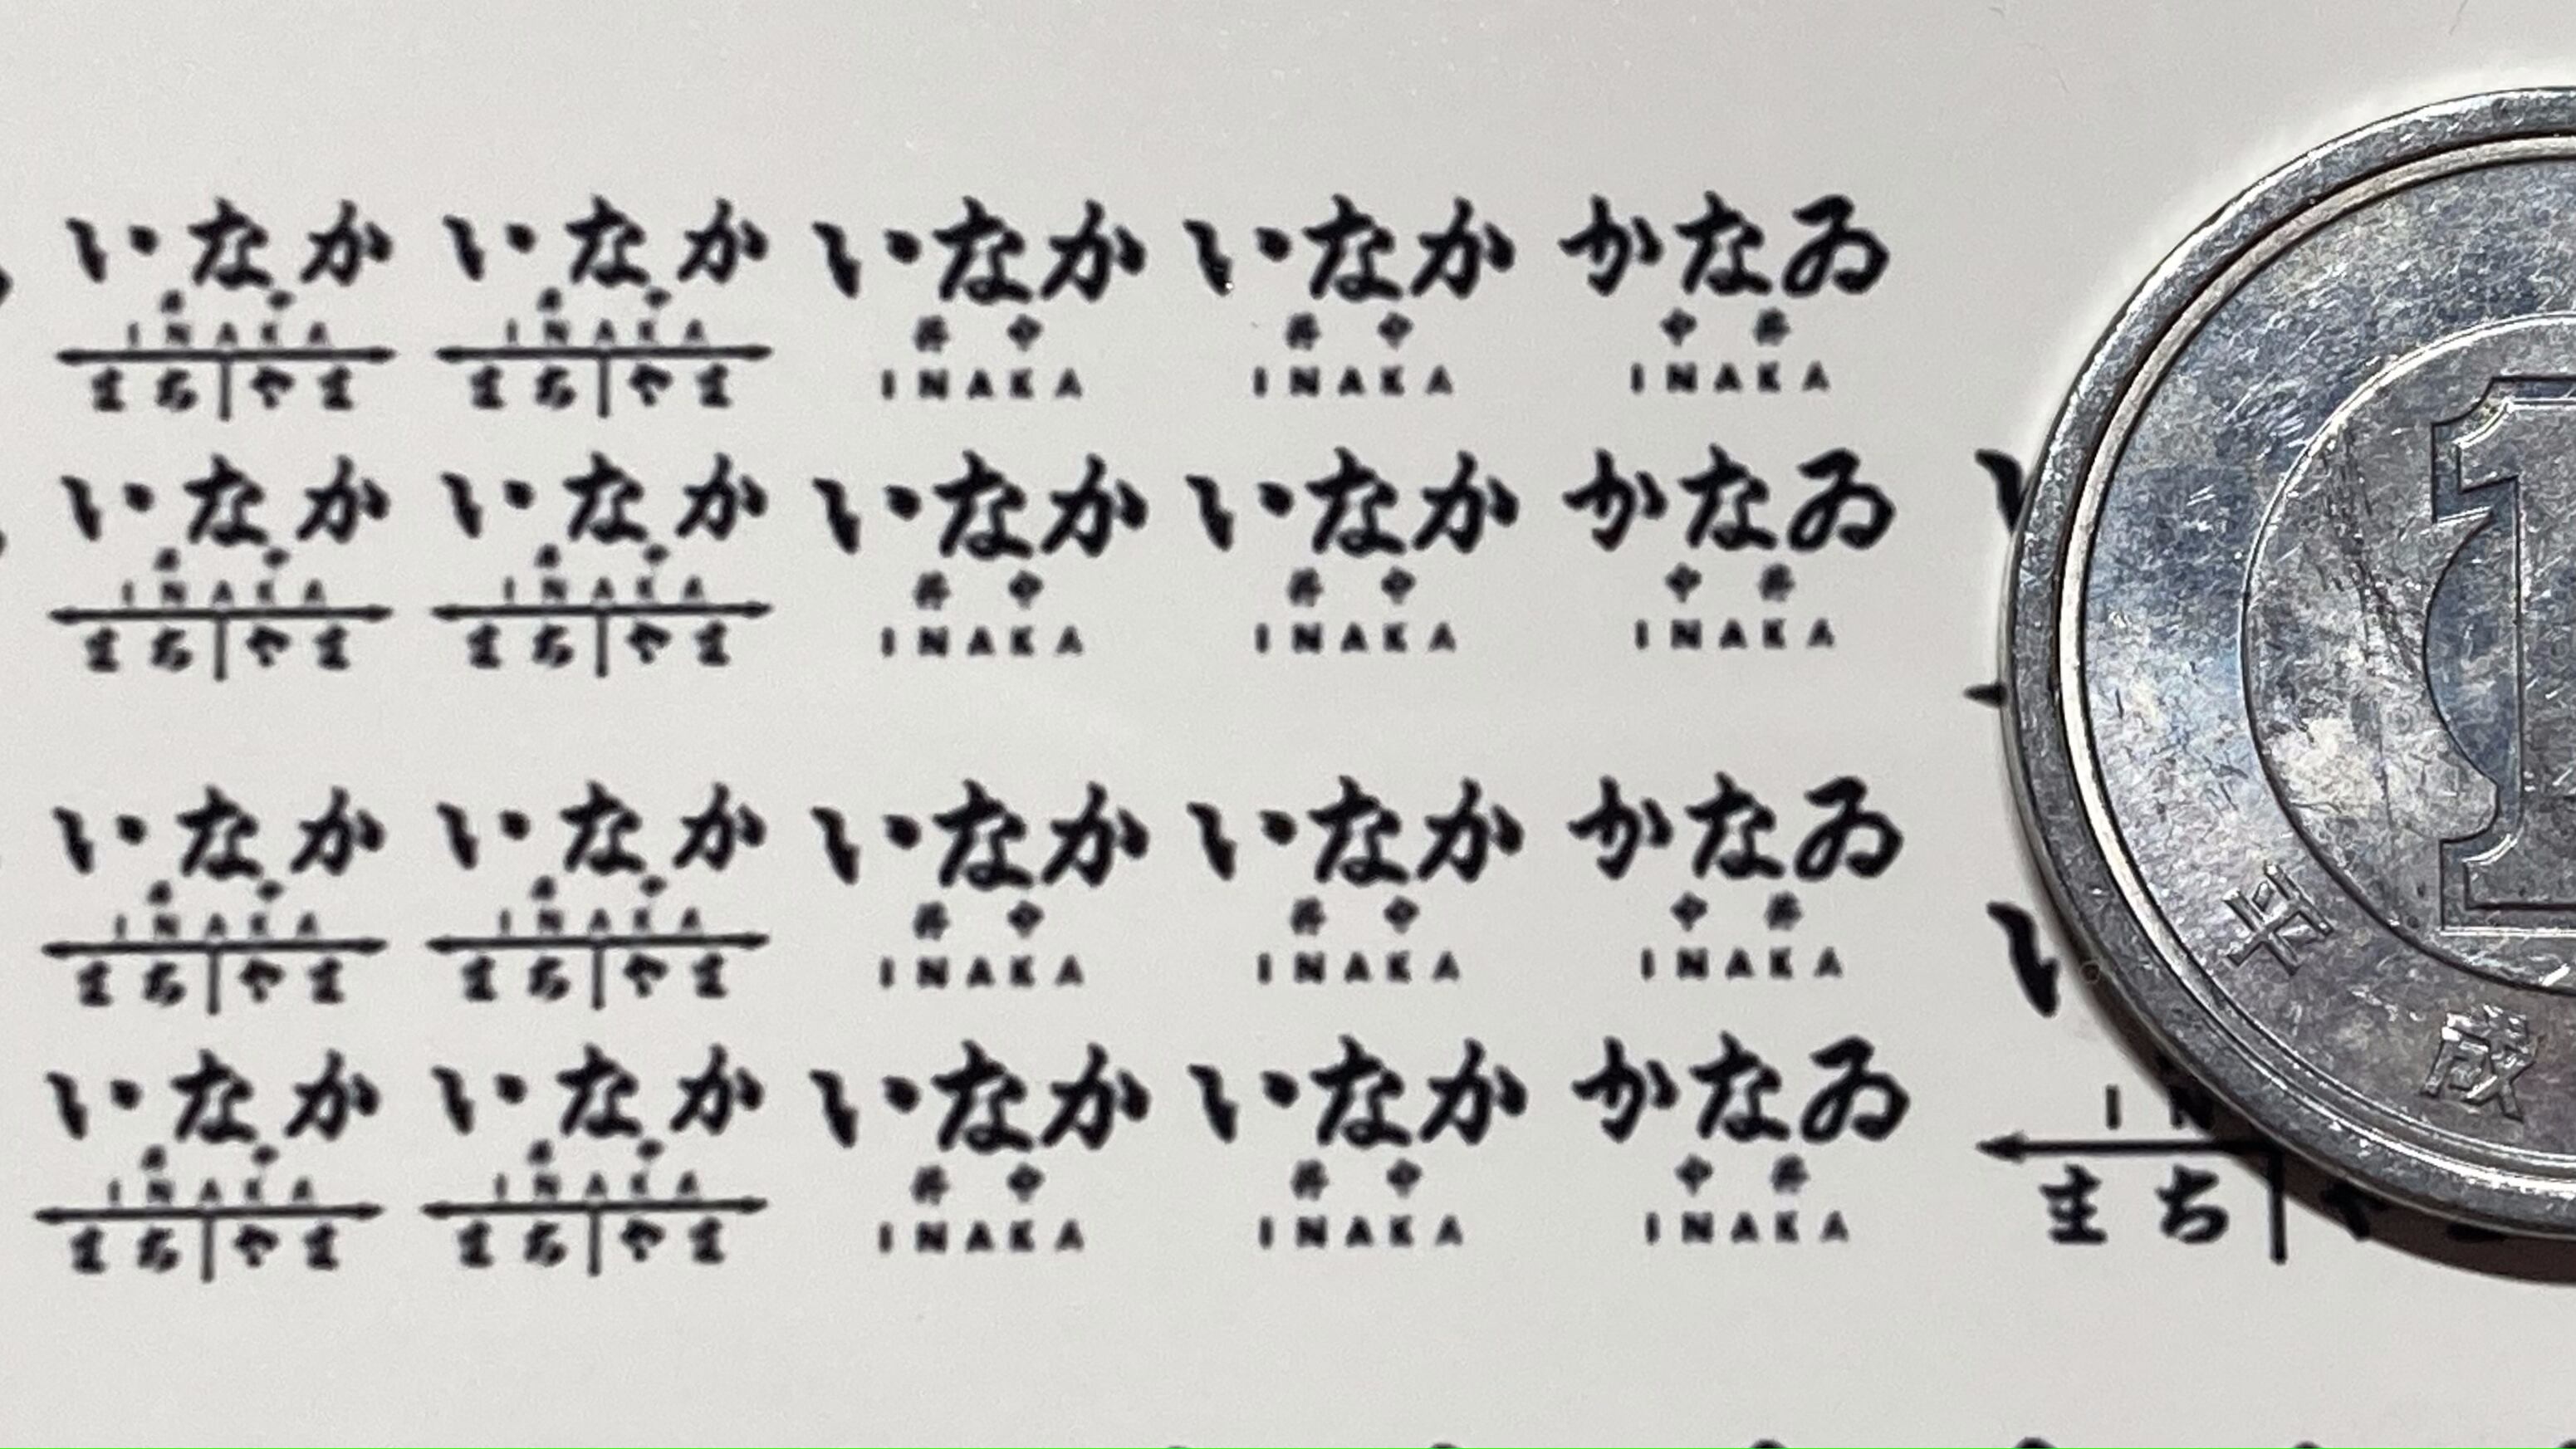 いなか いなか いなか いなか かなゐ
井 中 井 中 中 井
I N A K A I N A K A I N A K A I N A K A I N A K A
まち やま まち やま
いなか いなか いなか いなか かなゐ
井 中 井 中 中 井
I N A K A I N A K A I N A K A I N A K A I N A K A
まち やま まち やま
いなか いなか いなか いなか かなゐ
井 中 井 中 中 井
I N A K A I N A K A I N A K A I N A K A I N A K A
まち やま まち やま
いなか いなか いなか いなか かなゐ
井 中 井 中 中 井
I N A K A I N A K A I N A K A I N A K A I N A K A
まち やま まち やま まち
1
平成